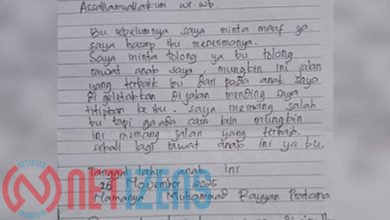 Assallamuallaikum wr.wb.
Bu sebelumnya saya minta maaf ya.
saya harap ibu menerimanya.
Saya minta tolong ya bu tolong
rawat anak saya. mungkin ini jalan
yang terbaik bu dari pada anak saya
di geletakkan di jalan mending saya
titipkan ke ibu. saya memang salah
bu tapi ga ada cara lain mungkin
ini memang jalan yang terbaik.
sekali lagi rawat anak ini ya bu.
Tanggal lahir anak ini
November
Namanya Muhammad Rayyan
NETIZENS